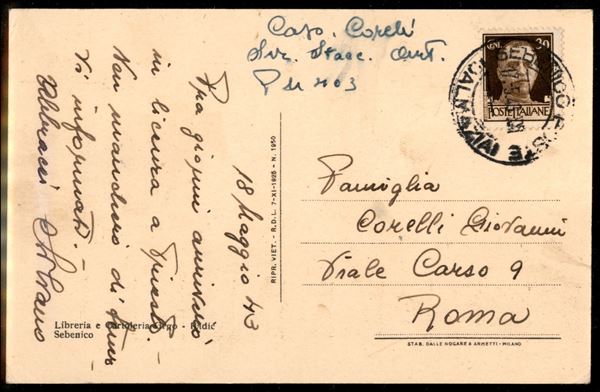 Cap. Corelli
Sez. Stacc. Art.
P.M. 403
18 Maggio 43
Fra giorni arriverò
in licenza a Trieste.
Non mancherò di tener
Vi informati. -
Abbracci
IMP.
30
POSTE ITALIANE
SEBENICO
(DALMAZIA)
Famiglia
Corelli Giovanni
Viale Carso 9
Roma
RIPR. VIET. - R. D. L. 7-XI-1925 - N. 1950
Libreria e Cartoleria
Sebenico
STAB. DALLE NOGARE & ARMETTI - MILANO